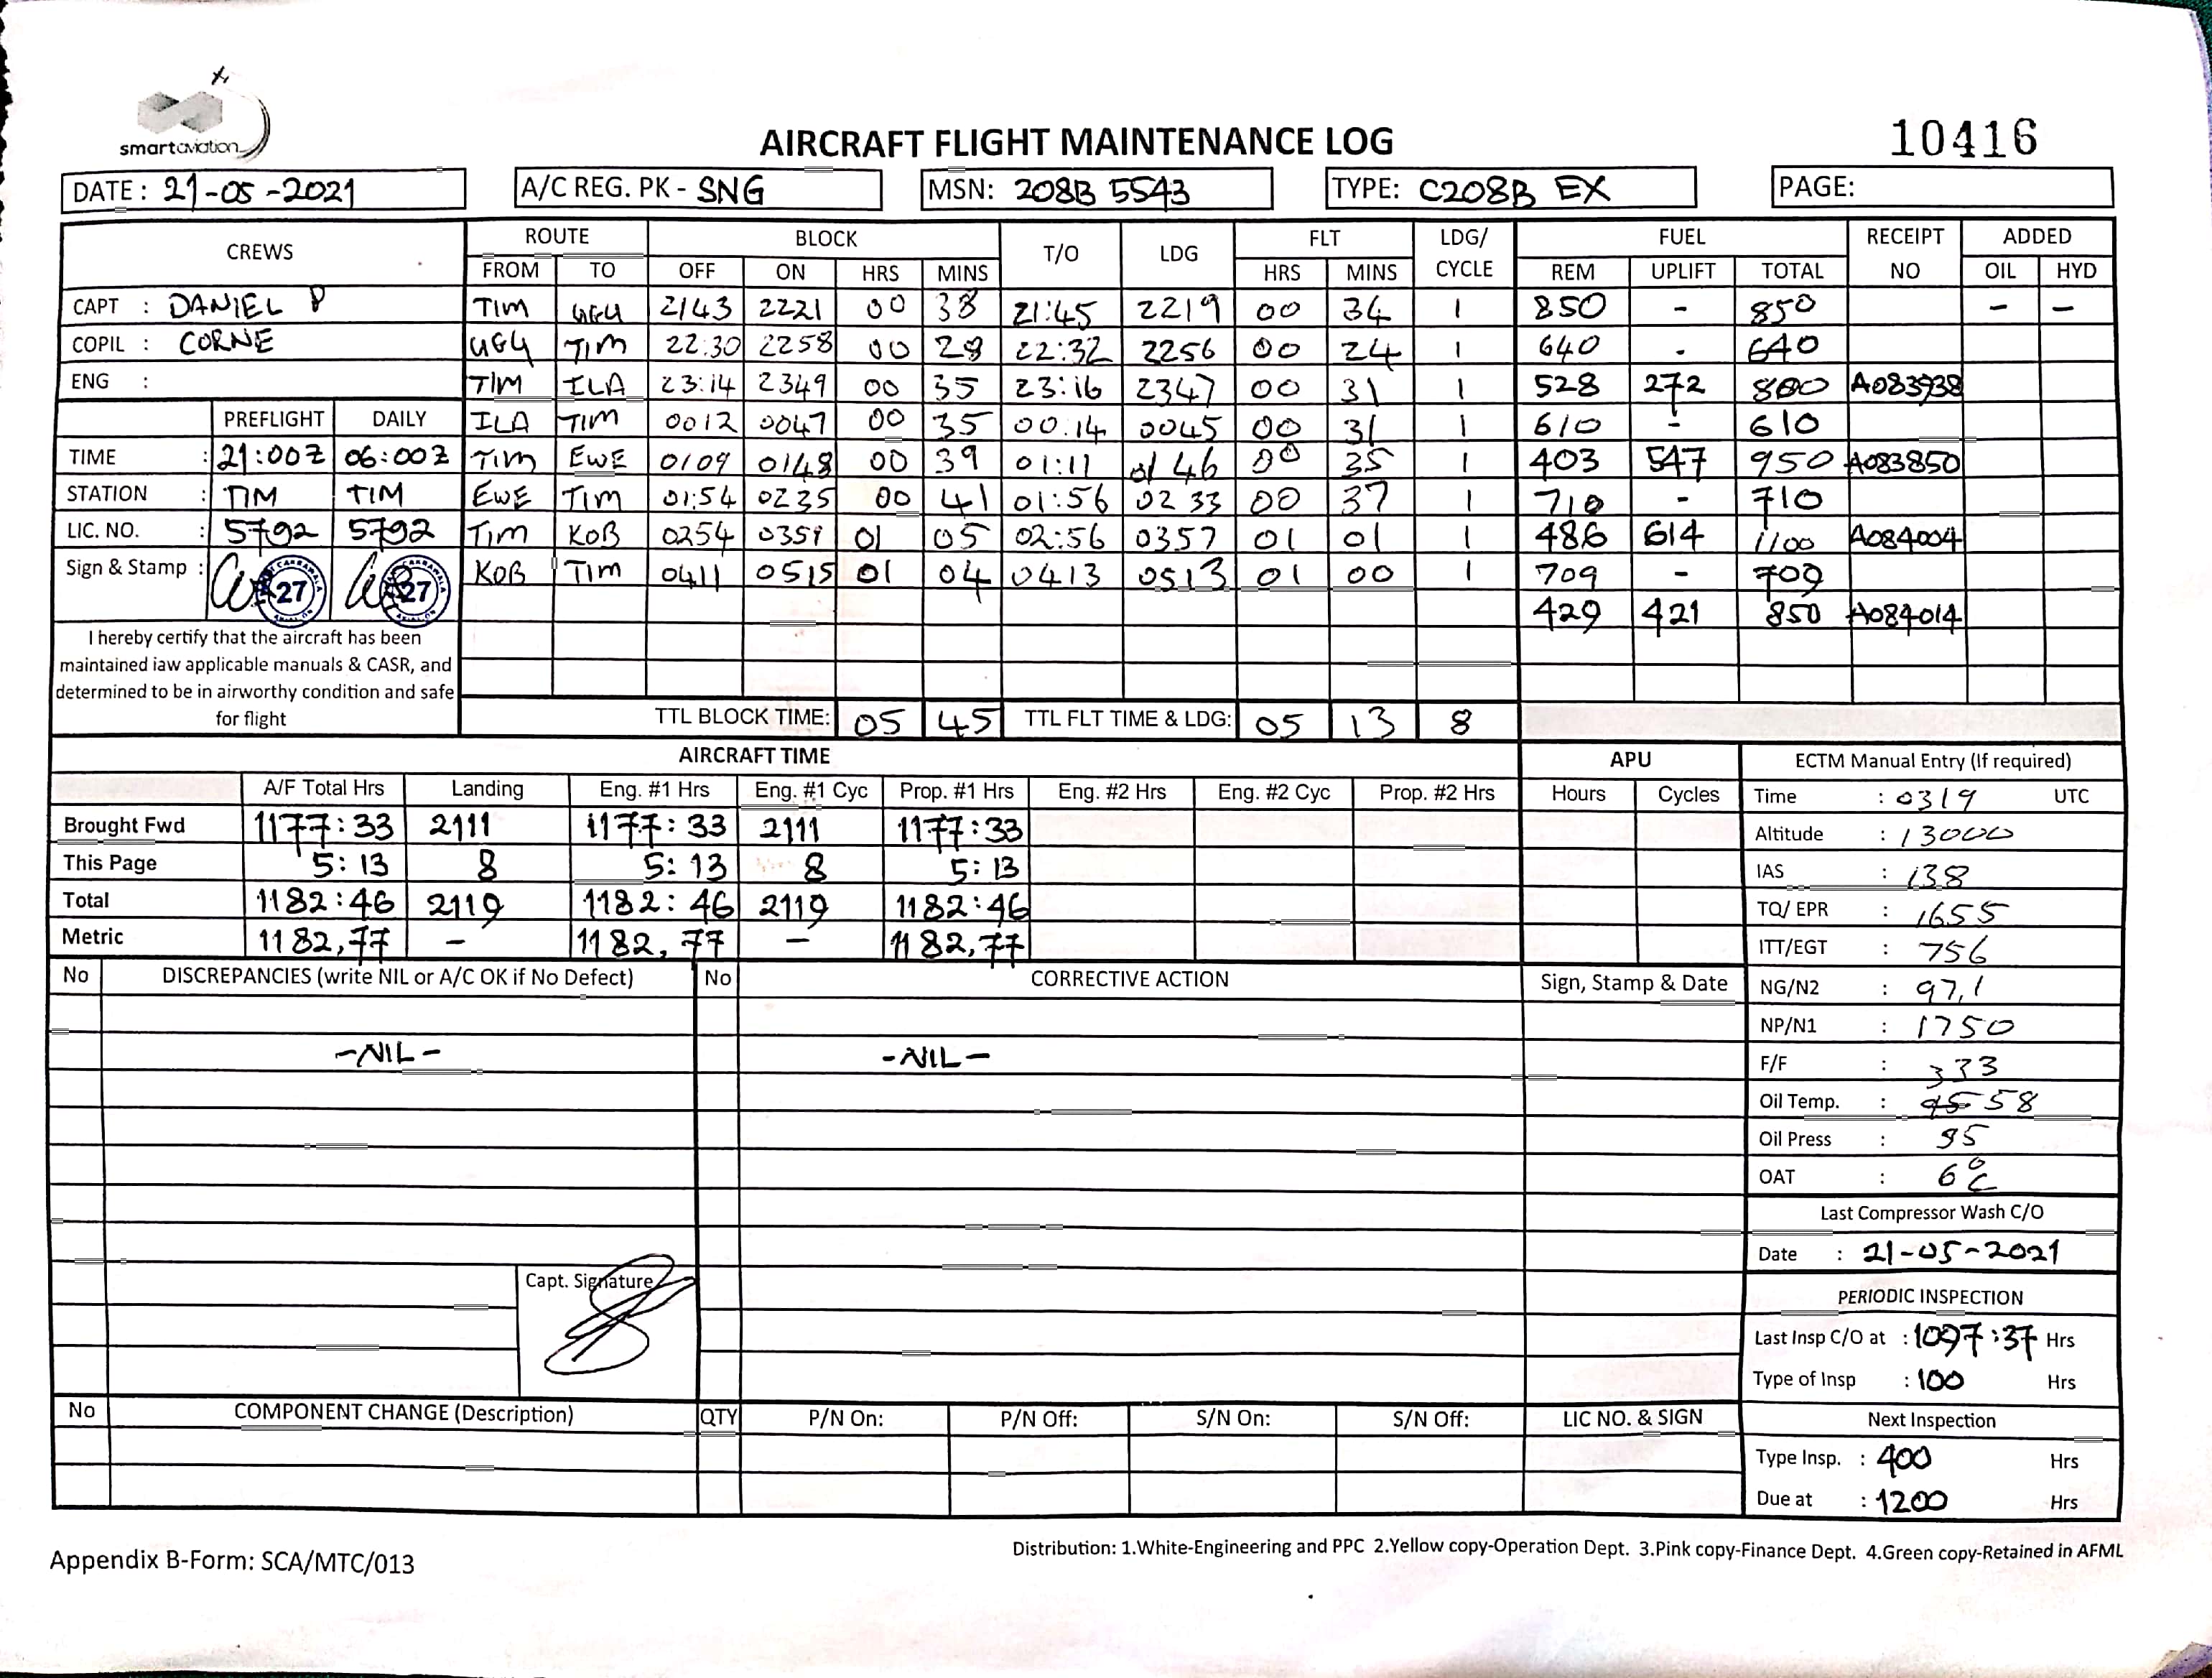 smartaviation
AIRCRAFT FLIGHT MAINTENANCE LOG
10416
DATE : 21-05-2021
A/C REG. PK - SNG
MSN: 208B 5543
TYPE: C208B EX
PAGE:
CREWS ROUTE BLOCK T/O LDG FLT LDG/ CYCLE FUEL RECEIPT NO ADDED
FROM TO OFF ON HRS MINS HRS MINS REM UPLIFT TOTAL OIL HYD
CAPT : DANIEL P TIM UGU 2143 2221 00 38 21:45 2219 00 34 1 850 - 850 - -
COPIL : CORNE UGU TIM 22:30 2258 00 28 22:32 2256 00 24 1 640 - 640
ENG : TIM ILA 23:14 2349 00 35 23:16 2347 00 31 1 528 272 800 A083938
PREFLIGHT DAILY ILA TIM 0012 0047 00 35 00:14 0045 00 31 1 610 - 610
TIME : 21:00Z 06:00Z TIM EWE 0109 0148 00 39 01:11 0146 00 35 1 403 547 950 A083850
STATION : TIM TIM EWE TIM 01:54 0235 00 41 01:56 0233 00 37 1 710 - 710
LIC. NO. : 5792 5792 TIM KOB 0254 0359 01 05 02:56 0357 01 01 1 486 614 1100 A084004
Sign & Stamp : 27 27 KOB TIM 0411 0515 01 04 0413 0513 01 00 1 709 - 709
429 421 850 A084014
I hereby certify that the aircraft has been
maintained iaw applicable manuals & CASR, and
determined to be in airworthy condition and safe
for flight
TTL BLOCK TIME: 05 45 TTL FLT TIME & LDG: 05 13 8
AIRCRAFT TIME APU
A/F Total Hrs Landing Eng. #1 Hrs Eng. #1 Cyc Prop. #1 Hrs Eng. #2 Hrs Eng. #2 Cyc Prop. #2 Hrs Hours Cycles
Brought Fwd 1177:33 2111 1177:33 2111 1177:33
This Page 5:13 8 5:13 8 5:13
Total 1182:46 2119 1182:46 2119 1182:46
Metric 1182,77 - 1182,77 - 1182,77
ECTM Manual Entry (If required)
Time : 0319 UTC
Altitude : 13000
IAS : 138
TQ/ EPR : 1655
ITT/EGT : 756
NG/N2 : 97,1
NP/N1 : 1750
F/F : 333
Oil Temp. : 58
Oil Press : 95
OAT : 6°C
Last Compressor Wash C/O
Date : 21-05-2021
PERIODIC INSPECTION
Last Insp C/O at : 1097:37 Hrs
Type of Insp : 100 Hrs
Next Inspection
Type Insp. : 400 Hrs
Due at : 1200 Hrs
No DISCREPANCIES (write NIL or A/C OK if No Defect) No CORRECTIVE ACTION Sign, Stamp & Date
-NIL- -NIL-
Capt. Signature
No COMPONENT CHANGE (Description) QTY P/N On: P/N Off: S/N On: S/N Off: LIC NO. & SIGN
Appendix B-Form: SCA/MTC/013
Distribution: 1.White-Engineering and PPC 2.Yellow copy-Operation Dept. 3.Pink copy-Finance Dept. 4.Green copy-Retained in AFML